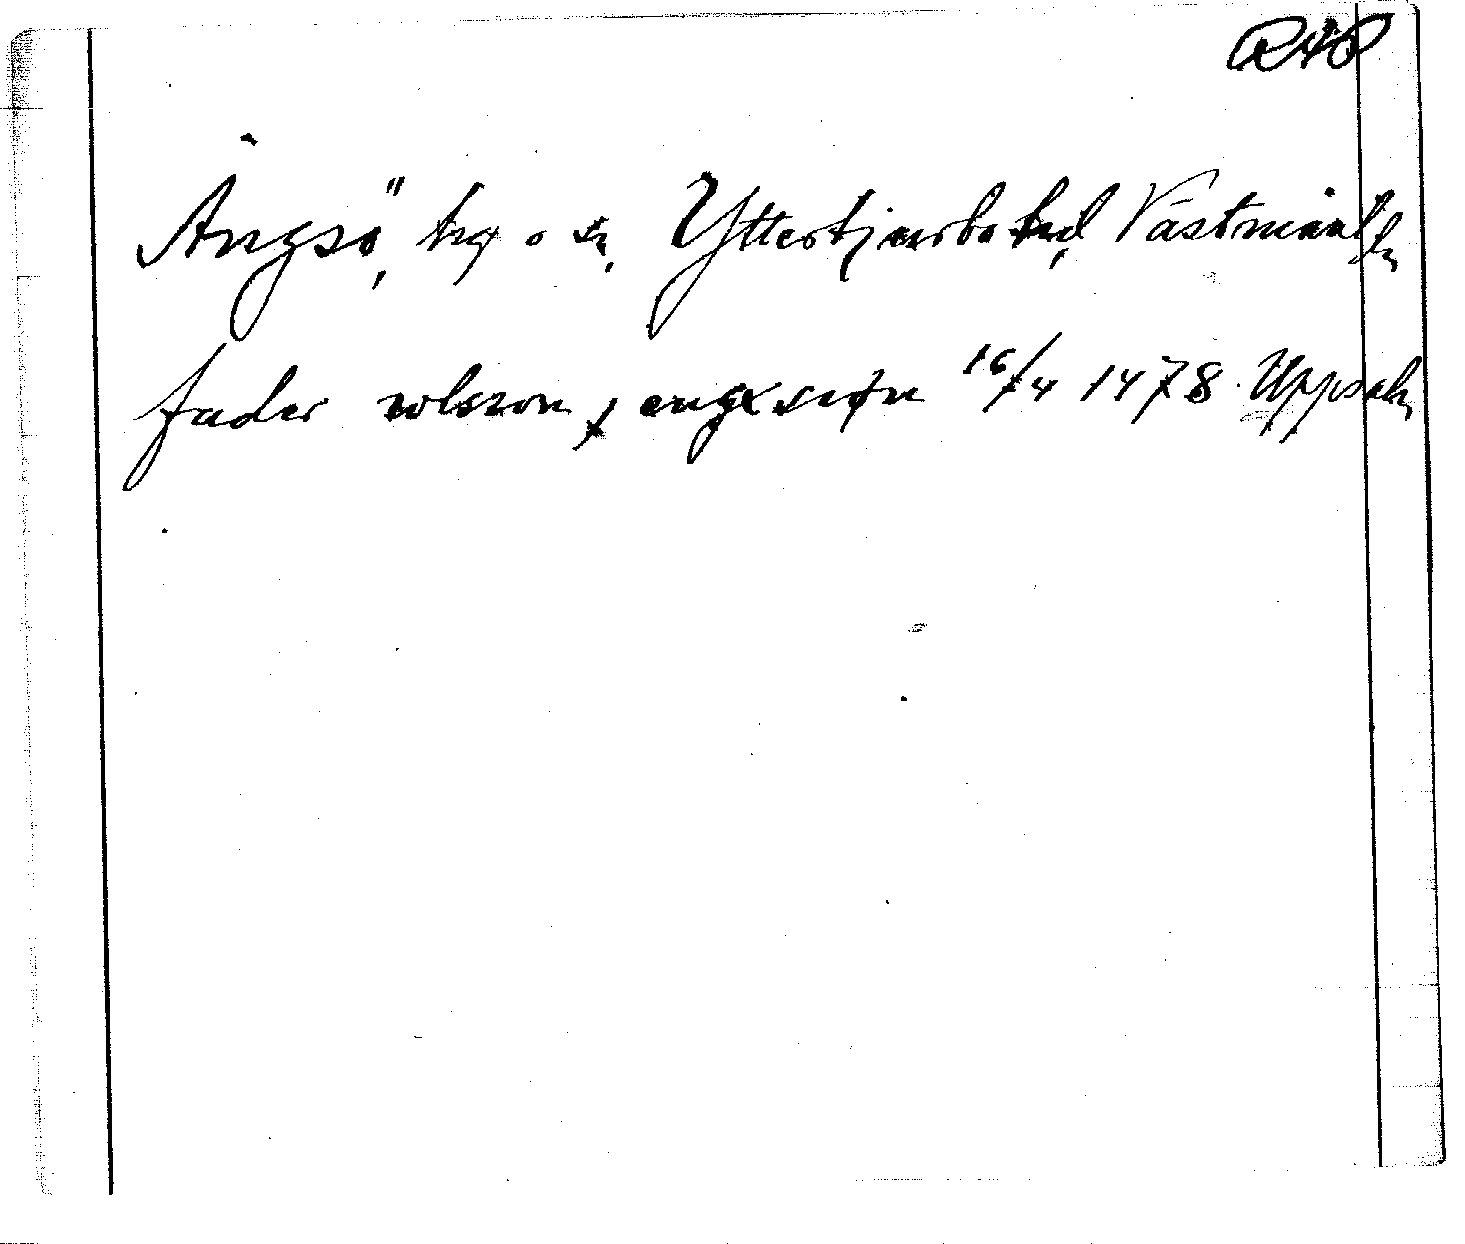 RAP
Ängsö, hg o sn, Yttertjurbo hd, Västmanl ln
fader olsson j engxsøøn 16/4 1478 Uppsala